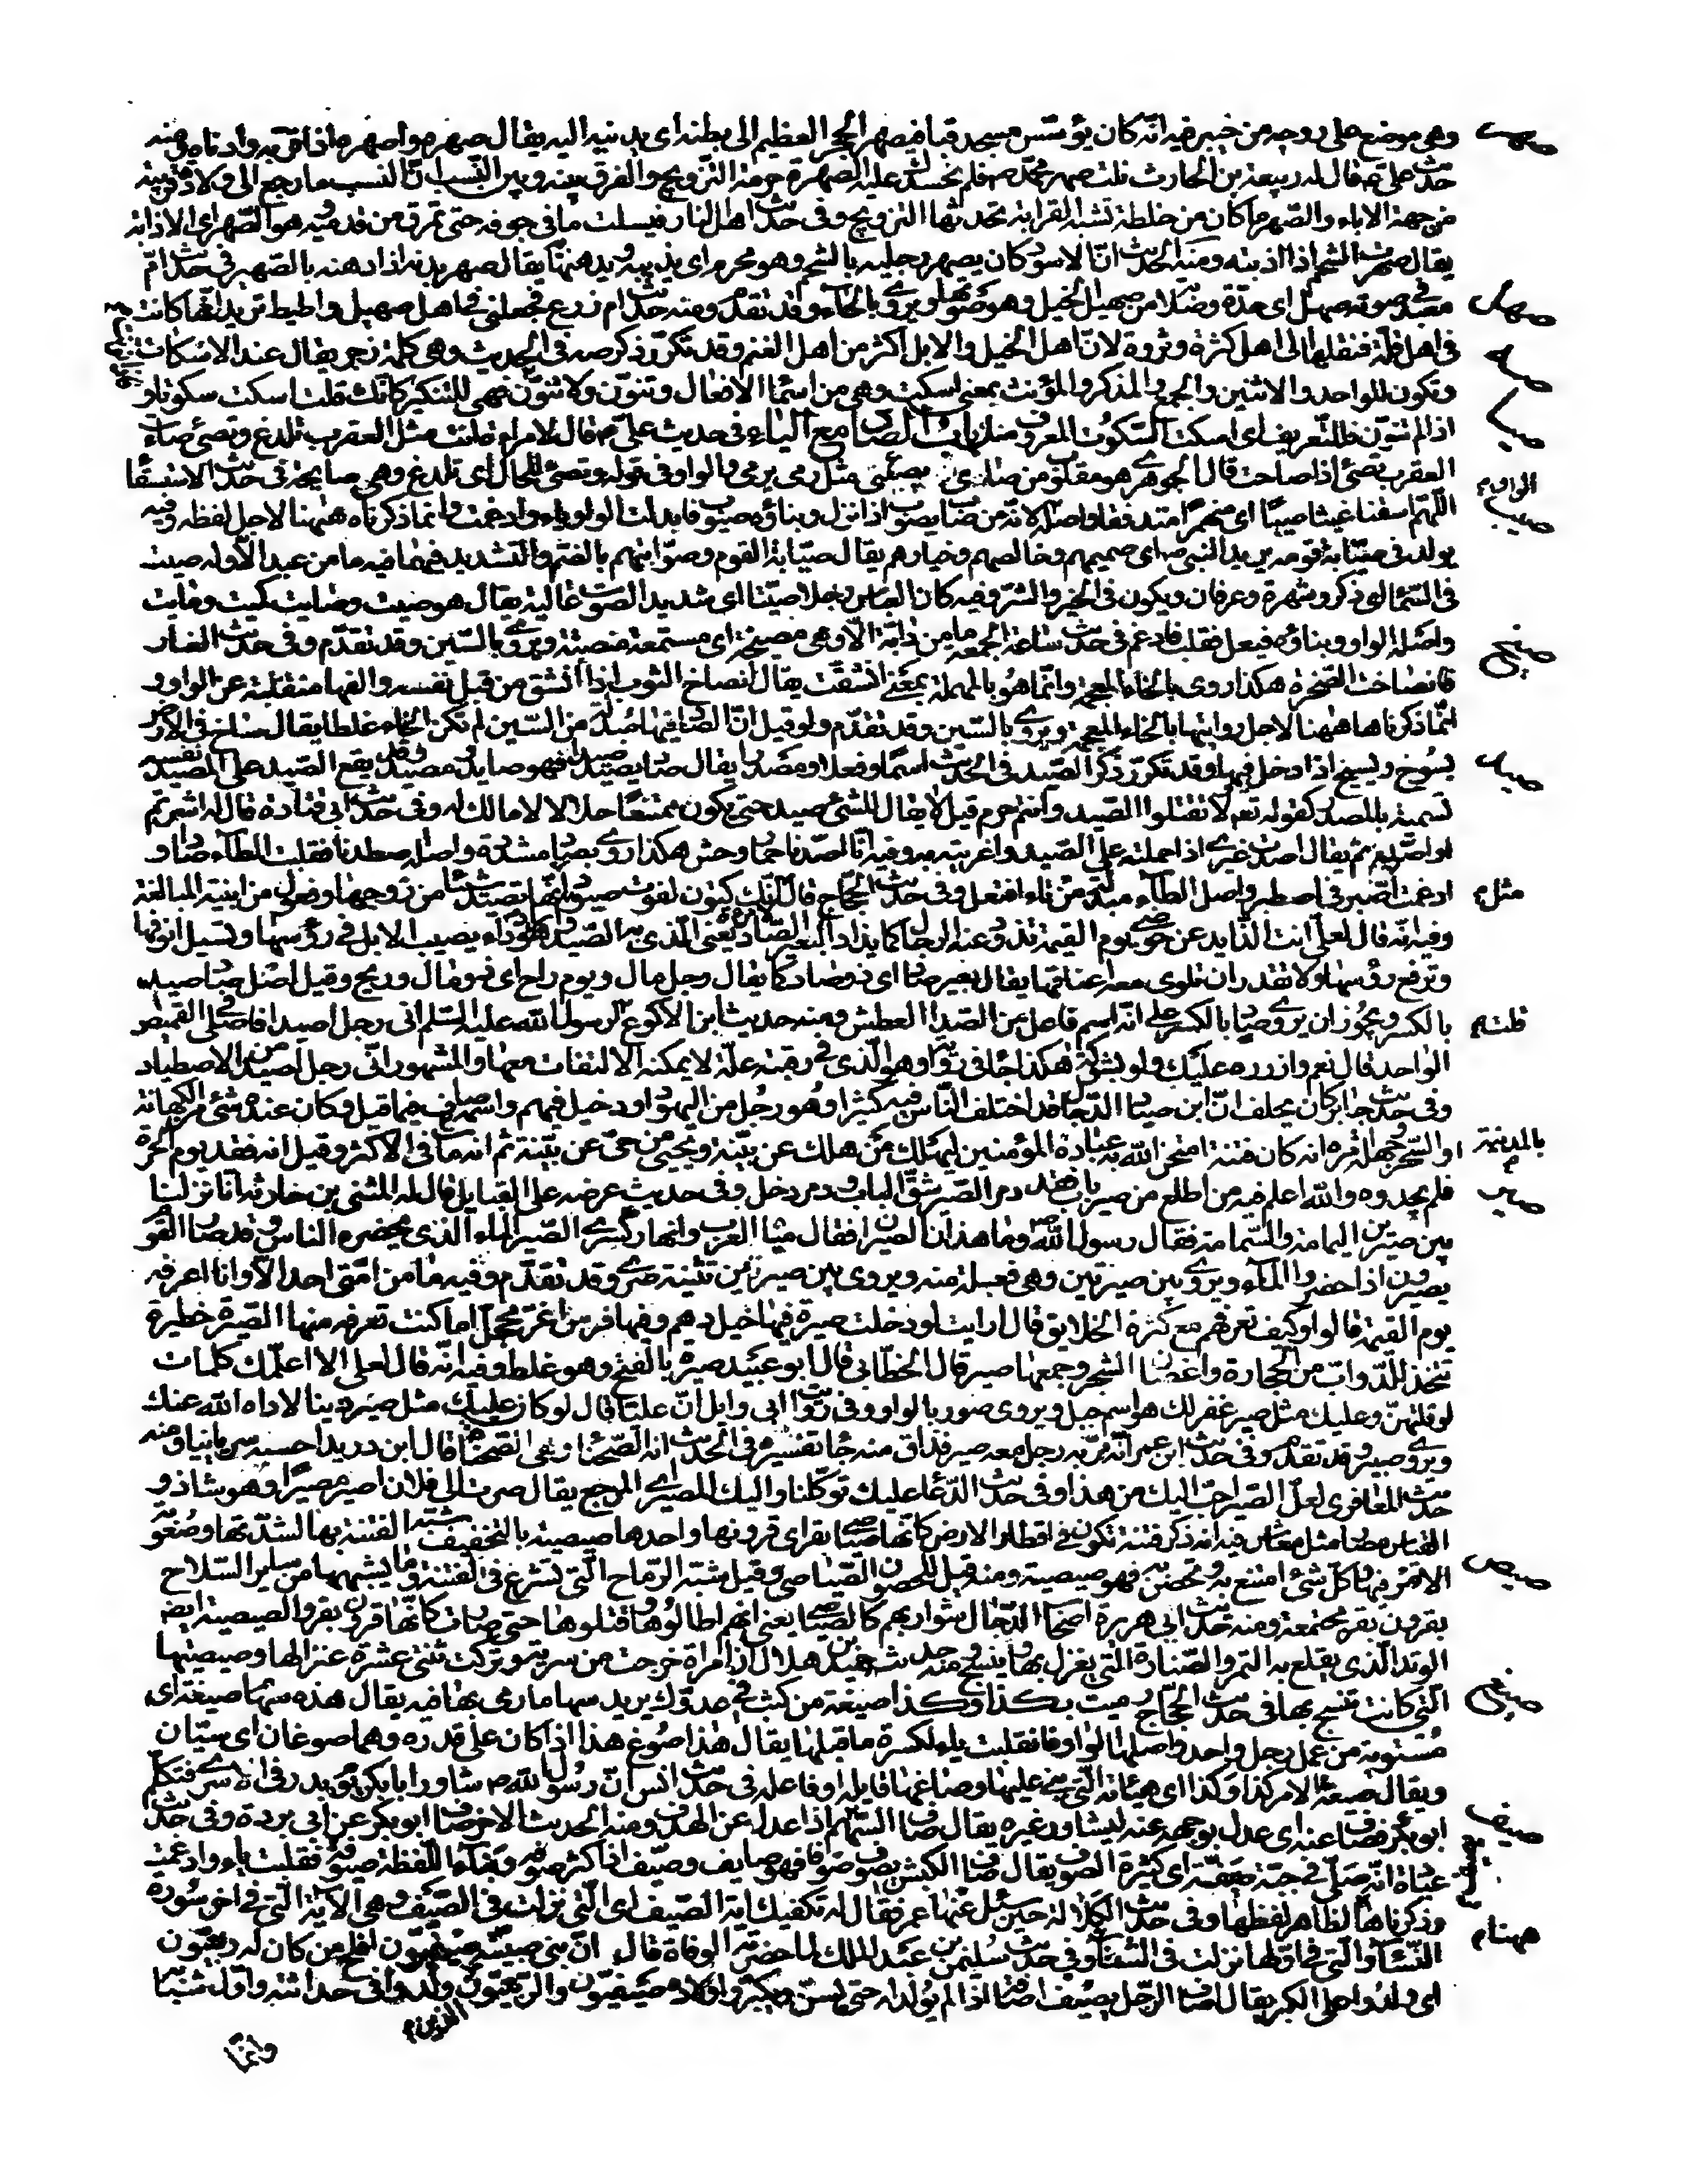 وهى موضع على روحة من خيبر فيه انّه كان يؤسّس مسجد قبا فيصهر الحجر العظيم الى بطنه اى يدنيه اليه يقال صهره واصهره اذا قرّبه وادناه ومنه
حديث على قال له ربيعة بن الحارث نلت صهر محمّد فلم نحسدك عليه الصهر حرمة التزويج والفرق بينه وبين النسب انّ النسب ما رجع الى ولادة قريبة
من جهة الاباء والصّهر ما كان من خلطة تشبه القرابة يحدثها التزويج وفى حديث اهل النار فيسلت ما فى جوفه حتى يمرق من قدميه وهو الصّهر اى الاذابة
يقال صهرت الشحم اذا اذبته ومنه الحديث انّ الاسود كان يصهر رجليه بالشحم وهو محرم اى يذيبه ويدهنهما يقال صهر بدنه اذا دهنه بالصّهير فى حديث امّ
معبد فى صوته صهل اى حدّة وصلابة من صهيل الخيل وهو صوتها ويروى بالحاء وقد تقدّم ومنه حديث ام زرع فجعلنى فى اهل صهيل واطيط تريد انّها كانت
فى اهل قلّة فنقلها الى اهل كثرة وثروة لانّ اهل الخيل والابل اكثر من اهل الغنم قد تكرّر ذكر صه فى الحديث وهى كلمة زجر يقال عند الاسكات
وتكون للواحد والاثنين والجمع والمذكر والمؤنث بمعنى اسكت وهى من اسماء الافعال وتنوّن ولا تنوّن فهى للتنكير كانّك قلت اسكت سكوتا و
اذا لم تنوّن فللتّعريف اى اسكت السّكوت المعروف منك باب الصاد مع الياء فى حديث علىّ قال لامراة انت مثل العقرب تلدغ وتصئ صاءت
العقرب تصئ اذا صاحت قال الجوهرى هو مقلوب من صاى يصئى مثل رمى يرمى والواو فى قوله وتصئ للحال اى تلدغ وهى صايحة فى حديث الاستسقا
اللّهم اسقنا غيثا صيّبا اى منهمرا متدفقا واصله الواو لانه من صاب يصوب اذا نزل وبناؤه صيوب فابدلت الواو ياء وادغمت وانما ذكرناه ههنا لاجل لفظه وفيه
يولد فى صيّابة قومه يريد النبى اى صميمهم وخالصهم وخيارهم يقال صيّابة القوم وصوّابتهم بالضم والتشديد فيهما فيه ما من عبد الّا وله صيت
فى السّماء اى ذكر وشهرة وعرفان ويكون فى الخير والشرّ وفيه كان العبّاس رجلا صيّتا اى شديد الصّوت عاليه يقال هو صيت وصايت كميت ومايت
واصله الواو وبناؤه فيعل فقلب فادغم فى حديث ساعة الجمعة ما من دابّة الّا وهى مصيخة اى مستمعة منصتة ويروى بالسّين وقد تقدّم وفى حديث الغار
فانصاخت الصّخرة هكذا روى بالخاء المعجمة وانّما هو بالمهملة بمعنى انشقّت يقال انصاخ الثوب اذا انشق من قبل نفسه والفها منقلبة عن الواو و
انّما ذكرناها ههنا لاجل روايتها بالخاء المعجمة ويروى بالسّين وقد تقدّم ولو قيل انّ الصّاد فيها مبدلة من السّين لم تكن الخاء غلطا يقال ساخ فى الارض
يسوخ ويسيخ اذا دخل فيها قد تكرّر ذكر الصّيد فى الحديث اسما وفعلا ومصدرا يقال صاد يصيد صيدا فهو صايد ومصيد وقد يقع الصّيد على المصيد نفسه
تسمية بالمصدر كقوله تعم لا تقتلوا الصّيد وانتم حرم قيل لا يقال للشئ صيد حتى يكون ممتنعا حلالا لا مالك له وفى حديث ابى قتادة قال له اشرتم
او اصّدتم يقال اصدت غيرى اذا حملته على الصّيد واغريته به وفيه انّا اصّدنا حمار وحش هكذا روى بصاد مشدّدة واصله اصطدنا فقلبت الطاء صادا و
ادغمت مثل اصّبر فى اصطبر واصل الطاء مبدلة من تاء افتعل وفى حديث الحجّاج قال لامراة انّك كتون لفوت صيود انّها تصيد شيئا من زوجها وفعول من ابنية المبالغة
وفيه انّه قال لعلى انت الذّايد عن حوضى يوم القيمة تذود عنه الرجال كما يذاد البعير الصّاد يعنى الّذى به الصّيد وهو داء يصيب الابل فى رؤسها فتسيل انوفها
وترفع رؤسها ولا تقدر ان تلوى معه اعناقها يقال بعير صاد اى ذو صاد كما يقال رجل مال ويوم راح اى ذو مال وريح وقيل اصل صاد صيد
بالكسر ويجوز ان يروى صاد بالكسر على انّه اسم فاعل من الصّدا العطش ومنه حديث ابن الاكوع قلت لرسول الله عليه السّلم انى رجل اصيد افاصلّى فى القميص
الواحد قال نعم وازرره عليك ولو بشوكة هكذا جاء فى رواية وهو الّذى فى رقبته علّة لا يمكنه الالتفات معها والمشهور انّى رجل اصيد من الاصطياد
وفى حديث جابر كان يحلف انّ ابن صياد الدّجال قد اختلف النّاس فيه كثيرا وهو رجل من اليهود او دخيل فيهم واسمه صاف فيما قيل وكان عنده شئ من الكهانة
والسّحر وجملة امره انه كان فتنة امتحن الله به عباده المؤمنين ليهلك من هلك عن بيّنة ويحيى من حىّ عن بيّنة ثم انه مات بالمدينة فى الاكثر وقيل انه فقد يوم الحرة
فلم يجدوه والله اعلم فيه من اطلع من صير باب فقد دمر الصّير شقّ الباب ودمر دخل وفى حديث عرضه على القبايل قال له المثنى بن حارثة انّا نزلنا
بين صيرين اليمامة والسّمامة فقال رسول الله وما هذان الصيران فقال مياه العرب وانهار كسرى الصّير الماء الذى يحضره الناس وقد صار القوم
يصيرون اذا حضروا الماء ويروى بين صيرتين وهى فعلة منه ويروى بين صريين تثنية صرى وقد تقدّم وفيه ما من امّتى احد الّا وانا اعرفه
يوم القيمة قالوا وكيف تعرفهم مع كثرة الخلايق قال ارايت لو دخلت صيرة فيها خيل دهم وفيها فرس اغرّ محجّل اما كنت تعرفه منها الصّيرة حظيرة
تتخذ للدّوابّ من الحجارة واغصان الشجر وجمعها صير قال الخطّابى قال ابو عبيد صيرة بالفتح وهو غلط وفيه انّه قال لعلى الا اعلّمك كلمات
لو قلتهنّ وعليك مثل صير غفر لك هو اسم جبل ويروى صور بالواو وفى رواية ابى وايل انّ عليّا قال لو كان عليك مثل صير دينا لاداه الله عنك
ويروى صبير وقد تقدّم وفى حديث ابن عمر انّه مرّ به رجل معه صير فذاق منه جاء تفسيره فى الحديث انه الصّحناء وهى الصّحناة قال ابن دريد احسبه سريانيّا ومنه
حديث المعافرى لعلّ الصّير احبّ اليك من هذا وفى حديث الدّعاء عليك توكّلنا واليك المصير اى المرجع يقال صرت الى فلان اصير مصيرا وهو شاذ و
القياس مصار مثل معاش فيه انه ذكر فتنة تكون فى اقطار الارض كانّها صياصى بقر اى قرونها واحدها صيصية بالتخفيف شبّه الفتنة بها لشدّتها وصعوبة
الامر فيها وكلّ شئ امتنع به وتحصّن به فهو صيصية ومنه قيل للحصون الصّياصى وقيل شبّه الرّماح الّتى تشرع فى الفتنة وما يشبهها من ساير السّلاح
بقرون بقر مجتمعة ومنه حديث ابى هريرة اصحاب الدّجّال شواربهم كالصّياصى يعنى انهم اطالوها وفتلوها حتى صارت كانّها قرون بقر والصيصية ايض
الوتد الّذى يقلع به التمر والصّنارة الّتى يغزل بها وينسج ومنه حديث حميد بن هلال انّ امراة خرجت من سرية وتركت ثنتى عشرة عنزا لها وصيصيتها
الّتى كانت تنسج بها فى حديث الحجّاج رميت بكذا وكذا صيغة من كثب فى عدوّك يريد سهاما رمى بها فيه يقال هذه سهام صيغة اى
مستوية من عمل رجل واحد واصلها الواو فانقلبت ياء لكسرة ما قبلها يقال هذا صوغ هذا اذا كان على قدره وهما صوغان اى سيّان
ويقال صيغة الامر كذا وكذا اى هيئاته الّتى بنى عليها وصاغها قايله او فاعله فى حديث انس انّ رسول الله شاور ابا بكر يوم بدر فى الاسرى فتكلّم
ابو بكر فصاف عنه اى عدل بوجهه عنه ليشاور غيره يقال صاف السّهم اذا عدل عن الهدف ومنه الحديث الاخر صاف ابو بكر عن ابى بردة وفى حديث
عبادة انّه صلّى فى جبّة صيّفة اى كثيرة الصوف يقال صاف الكبش يصوف صوفا فهو صايف وصيّف اذا كثر صوفه وبناء اللّفظة صيوفة فقلبت ياء وادغمت
وذكرناها ههنا لظاهر لفظها وفى حديث الكلالة حين سئل عنها عمر فقال له تكفيك اية الصّيف اى الّتى نزلت فى الصّيف وهى الاية الّتى فى اخر سورة
النّساء والّتى فى اوّلها نزلت فى الشتاء وفى حديث سليمن بن عبد الملك لما حضرته الوفاة قال انّ بنىّ صبية صيفيّون افلح من كان له ربعيّون
اى ولدوا على الكبر يقال اصاف الرّجل يصيف اصافة اذا لم يولد له حتى يسنّ ويكبر واولاده صيفيّون والرّبعيّون الّذين ولدوا فى حداثته واوّل شبابه
وانّما